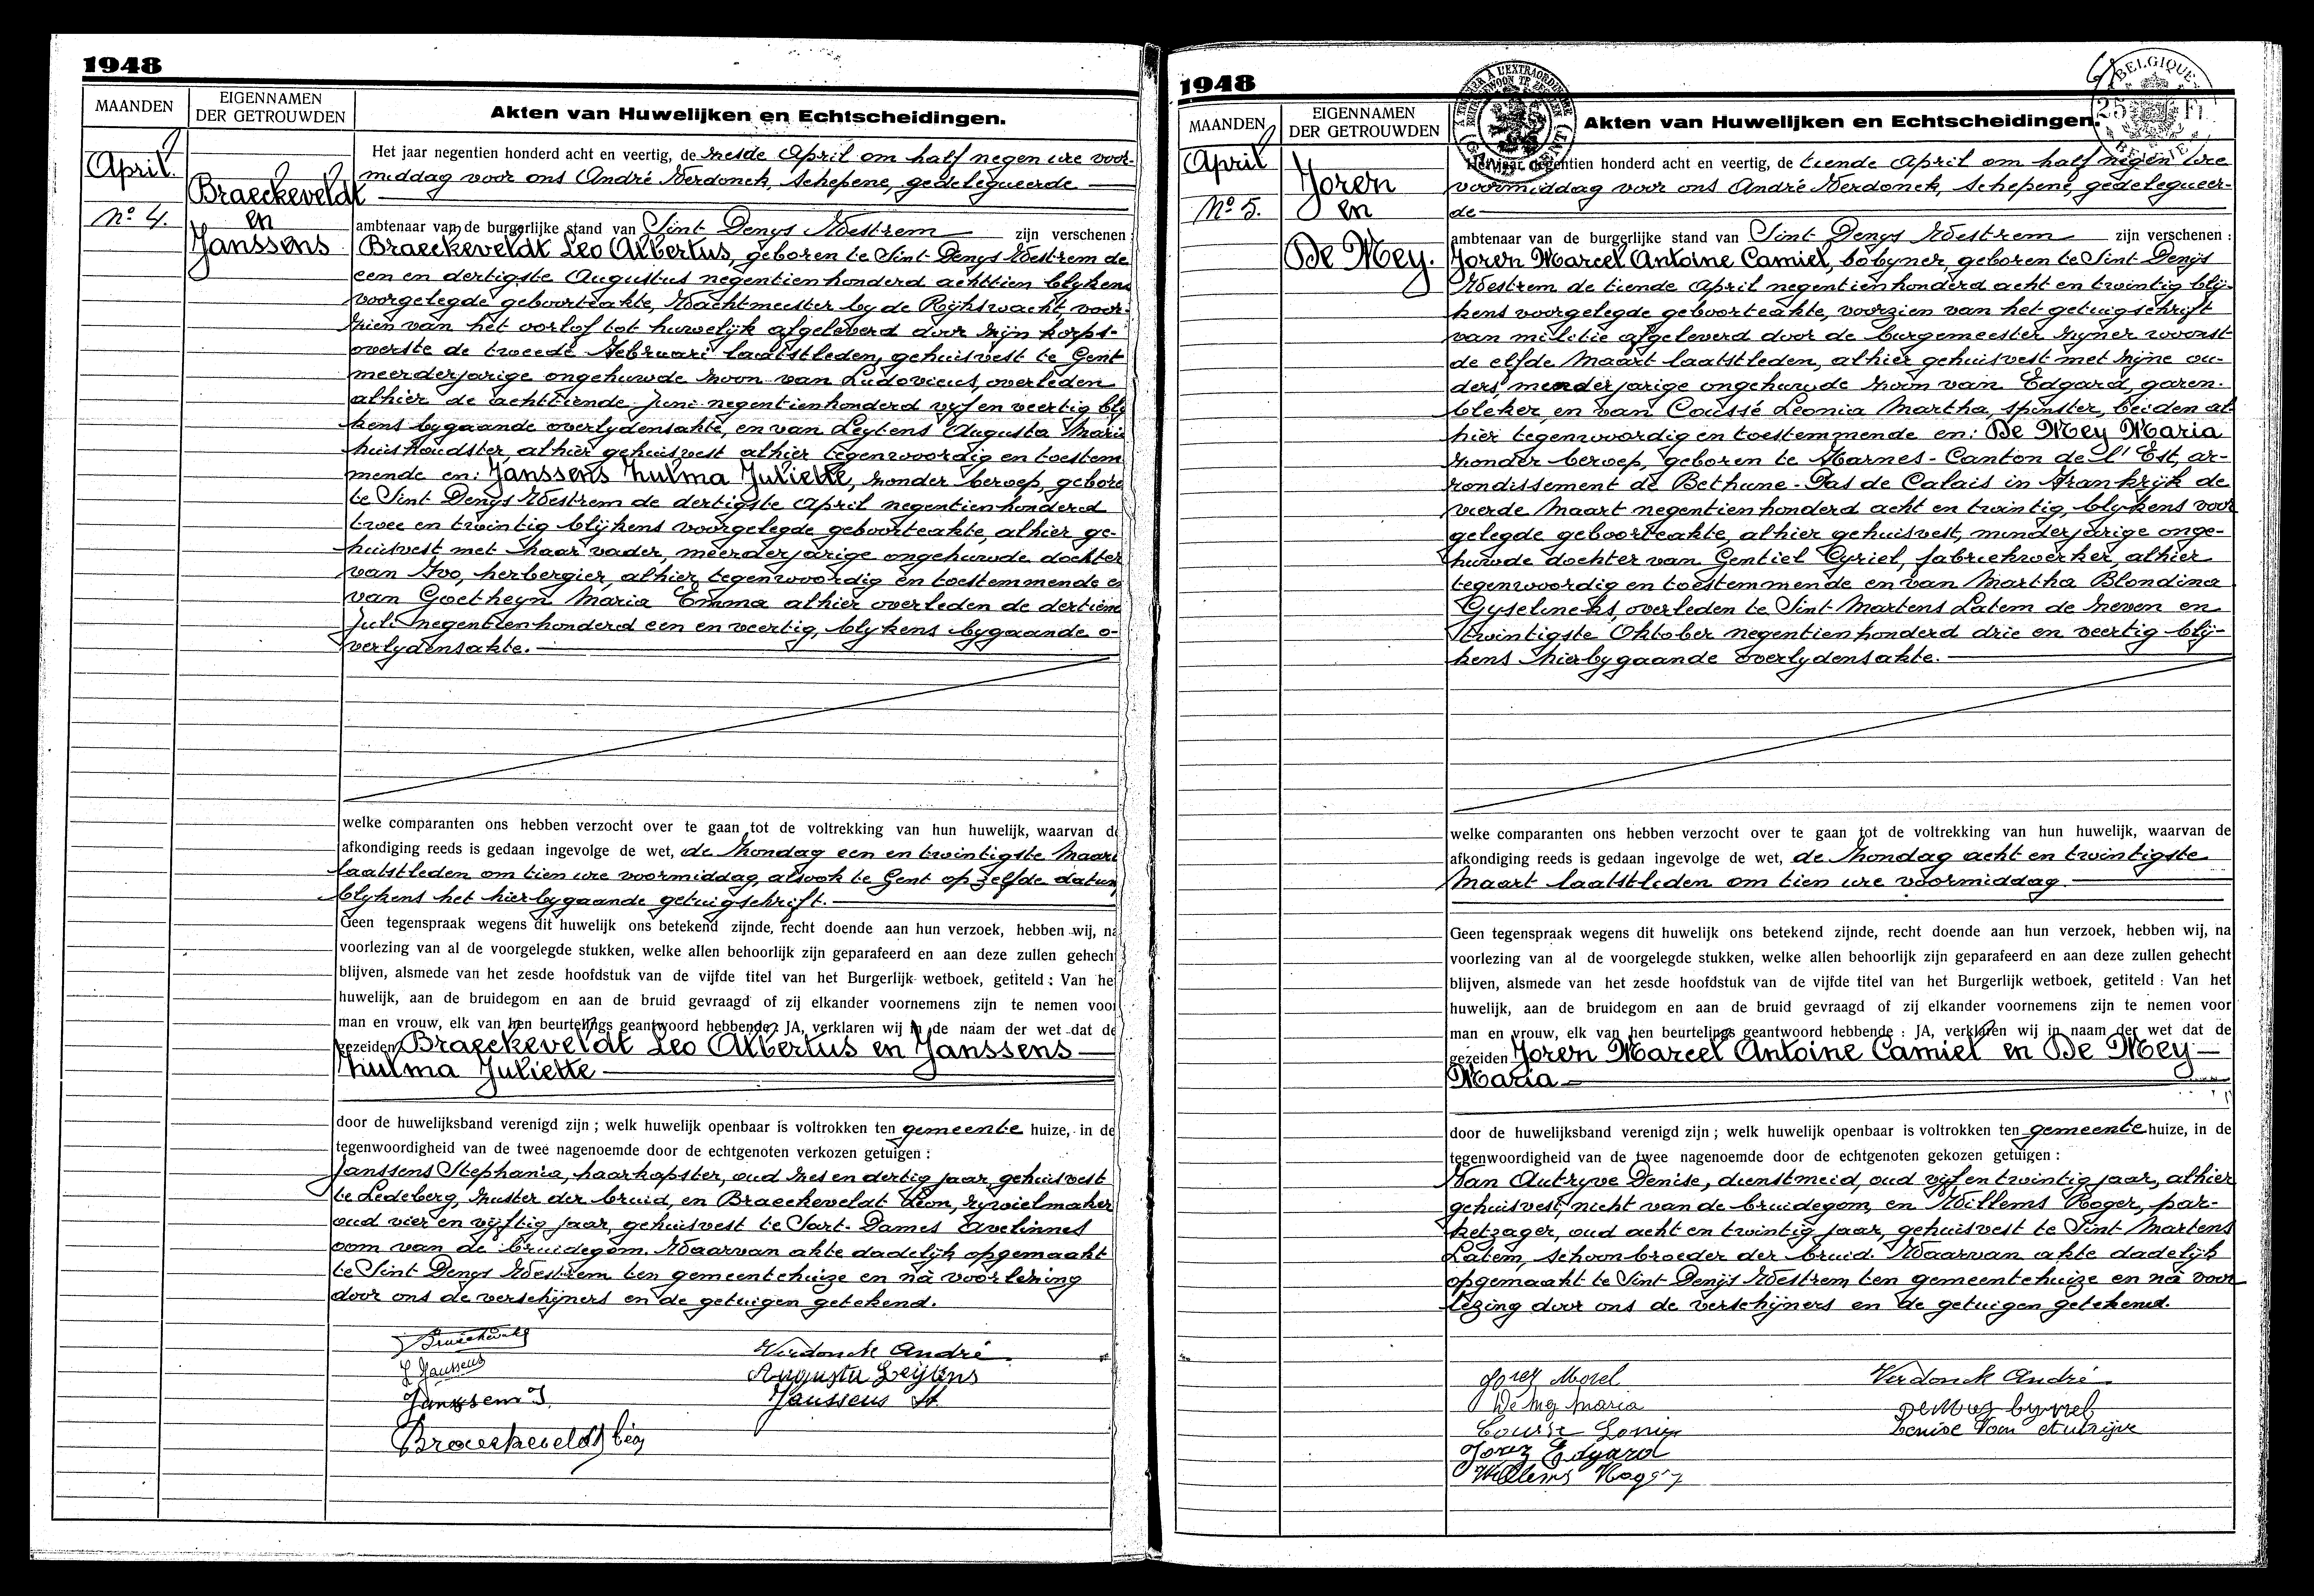 1948
MAANDEN
EIGENNAMEN
DER GETROUWDEN
Akten van Huwelijken en Echtscheidingen.
April.
Nº 4.
Braeckeveldt
en
Janssens
Het jaar negentien honderd acht en veertig, de zesde April om half negen ure voor-
middag voor ons André Verdonck, Schepene, gedelegueerde
ambtenaar van de burgerlijke stand van Sint Denys Westrem zijn verschenen :
Braeckeveldt Leo Albertus, geboren te Sint Denys Westrem de
een en dertigste Augustus negentienhonderd achttien blykens
voorgelegde geboorteakte, Wachtmeester by de Rijkswacht, voor-
zien van het oorlof tot huwelijk afgeleverd door zijn korps-
overste de tweede Februari laatstleden, gehuisvest te Gent
meerderjarige ongehuwde zoon van Ludovicus, overleden
alhier de achttiende Juni negentienhonderd vijf en veertig bly
kens bygaande overlydensakte, en van Leytens Augusta Maria
huishoudster, alhier gehuisvest alhier tegenwoordig en toestem
mende en: Janssens Zulma Juliette, zonder beroep, gebore
te Sint Denys Westrem de dertigste April negentienhonderd
twee en twintig blijkens voorgelegde geboorteakte, alhier ge-
huisvest met haar vader, meerderjarige ongehuwde dochter
van Ivo, herbergier, alhier tegenwoordig en toestemmende e
van Goetheyn Maria Emma alhier overleden de dertiend
Juli negentienhonderd een en veertig, blykens bygaande o-
verlydensakte.
welke comparanten ons hebben verzocht over te gaan tot de voltrekking van hun huwelijk, waarvan d
afkondiging reeds is gedaan ingevolge de wet, de Zondag een en twintigste Maart
laatstleden om tien ure voormiddag, alsook te Gent op zelfde datum
blykens het hierbygaande getuigschrift.
Geen tegenspraak wegens dit huwelijk ons betekend zijnde, recht doende aan hun verzoek, hebben wij, na
voorlezing van al de voorgelegde stukken, welke allen behoorlijk zijn geparafeerd en aan deze zullen gehech
blijven, alsmede van het zesde hoofdstuk van de vijfde titel van het Burgerlijk wetboek, getiteld : Van he
huwelijk, aan de bruidegom en aan de bruid gevraagd of zij elkander voornemens zijn te nemen voo
man en vrouw, elk van hen beurtelings geantwoord hebbende : JA, verklaren wij in de naam der wet dat de
gezeiden Braeckeveldt Leo Albertus en Janssens
Zulma Juliette
door de huwelijksband verenigd zijn ; welk huwelijk openbaar is voltrokken ten gemeente huize, in de
tegenwoordigheid van de twee nagenoemde door de echtgenoten verkozen getuigen :
Janssens Stephania, haarkapster, oud zes en dertig jaar, gehuisvest
te Ledeberg, zuster der bruid, en Braeckeveldt Leon, rywielmaker
oud vier en vijftig jaar, gehuisvest te Sart-Dames Avelinnes
oom van de bruidegom. Waarvan akte dadelijk opgemaakt
te Sint Denys Westrem ten gemeentehuize en nà voorlezing
door ons de verschijners en de getuigen getekend.
Verdonck André
J Janssens
Augusta Leijtens
Janssens J.
Janssens St
Braeckeveldt Léon
1948
MAANDEN
EIGENNAMEN
DER GETROUWDEN
Akten van Huwelijken en Echtscheidingen.
BELGIQUE
25 Fr
BELGIE
April
Nº 5.
Joren
en
De Mey.
Het jaar negentien honderd acht en veertig, de tiende April om half negen ure
voormiddag voor ons André Verdonck, Schepene, gedelegueer-
de
ambtenaar van de burgerlijke stand van Sint Denys Westrem zijn verschenen :
Joren Marcel Antoine Camiel, bobyner, geboren te Sint Denijs
Westrem de tiende April negentienhonderd acht en twintig blij-
kens voorgelegde geboorteakte, voorzien van het getuigschrift
van militie afgeleverd door de burgemeester zijner woonst
de elfde Maart laatstleden, alhier gehuisvest met zijne ou-
ders, minderjarige ongehuwde zoon van Edgard, garen-
bleker, en van Coussé Leonia Martha, spinster, beiden al-
hier tegenwoordig en toestemmende en: De Mey Maria
zonder beroep, geboren te Harnes-Canton de l'Est, ar-
rondissement de Bethune-Pas de Calais in Frankrijk de
vierde Maart negentienhonderd acht en twintig, blykens voor
gelegde geboorteakte, alhier gehuisvest, minderjarige onge-
huwde dochter van Gentiel Cyriel, fabriekwerker, alhier
tegenwoordig en toestemmende en van Martha Blondina
Gyselincks, overleden te Sint-Martens Latem de zeven en
twintigste Oktober negentienhonderd drie en veertig blij-
kens hierbygaande overlydensakte.
welke comparanten ons hebben verzocht over te gaan tot de voltrekking van hun huwelijk, waarvan de
afkondiging reeds is gedaan ingevolge de wet, de Zondag acht en twintigste
Maart laatstleden om tien ure voormiddag.
Geen tegenspraak wegens dit huwelijk ons betekend zijnde, recht doende aan hun verzoek, hebben wij, na
voorlezing van al de voorgelegde stukken, welke allen behoorlijk zijn geparafeerd en aan deze zullen gehecht
blijven, alsmede van het zesde hoofdstuk van de vijfde titel van het Burgerlijk wetboek, getiteld : Van het
huwelijk, aan de bruidegom en aan de bruid gevraagd of zij elkander voornemens zijn te nemen voor
man en vrouw, elk van hen beurtelings geantwoord hebbende : JA, verklaren wij in naam der wet dat de
gezeiden Joren Marcel Antoine Camiel en De Mey
Maria
door de huwelijksband verenigd zijn ; welk huwelijk openbaar is voltrokken ten gemeente huize, in de
tegenwoordigheid van de twee nagenoemde door de echtgenoten gekozen getuigen :
Van Autryve Denise, dienstmeid, oud vijf en twintig jaar, alhier
gehuisvest, nicht van de bruidegom, en Willems Roger, par-
ketzager, oud acht en twintig jaar, gehuisvest te Sint Martens
Latem, schoonbroeder der bruid. Waarvan akte dadelijk
opgemaakt te Sint Denijs Westrem, ten gemeentehuize en nà voor
lezing door ons de verschijners en de getuigen getekend.
Verdonck André
De Mey Maria
Denise Van Autrijve
Edgard
Willems